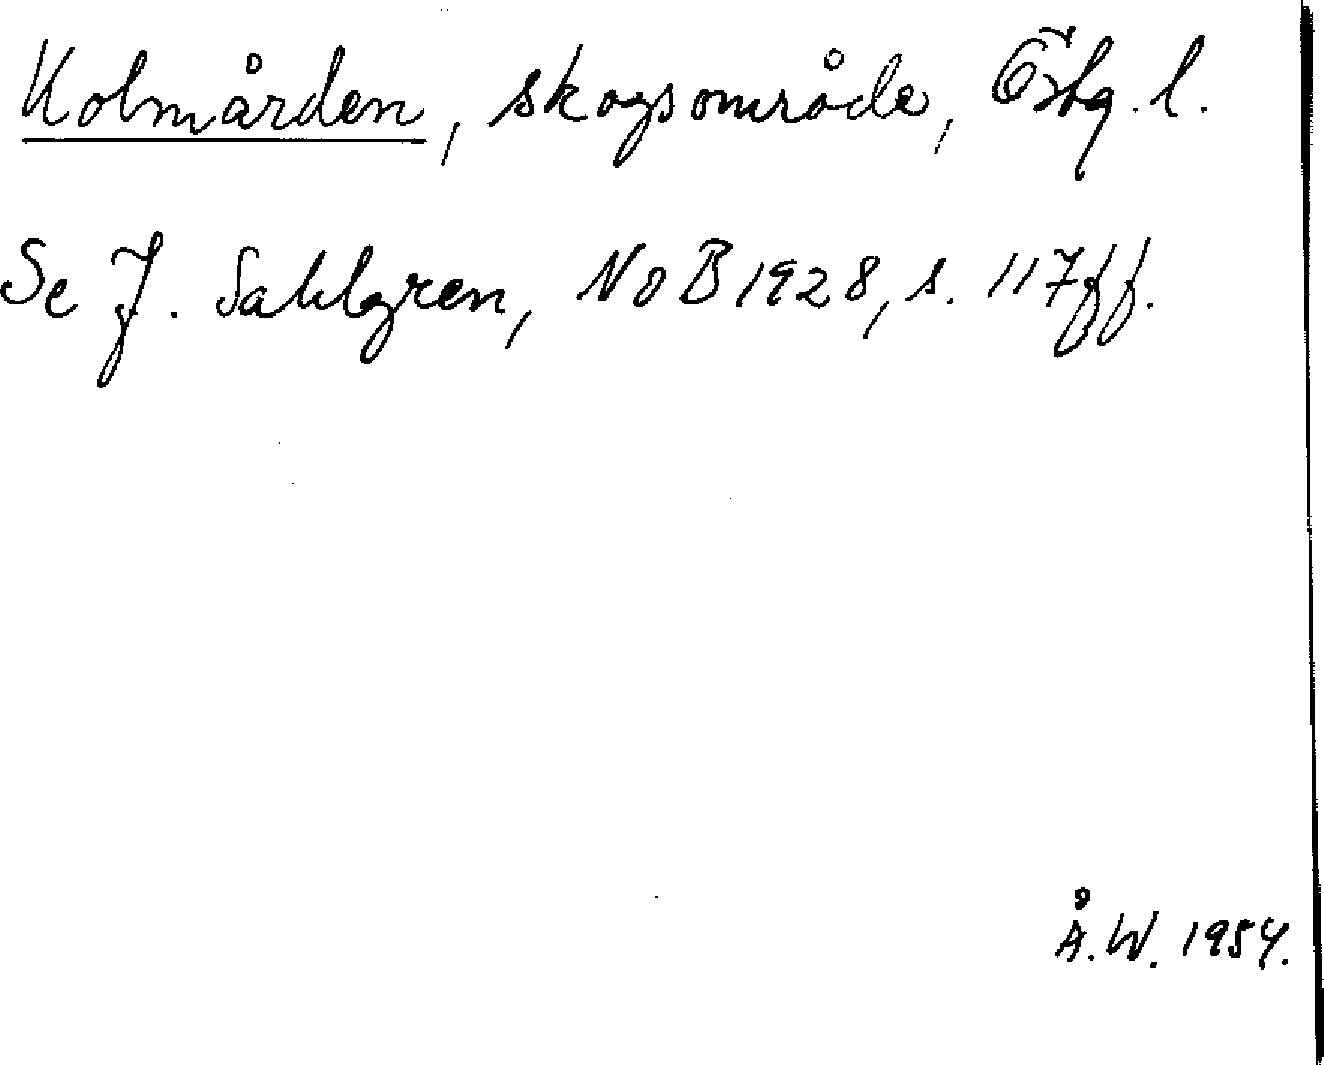 Kolmården, skogsområde, Östg. l.
Se J. Sahlgren, NoB 1928, s. 117ff.
Å. W. 1954.